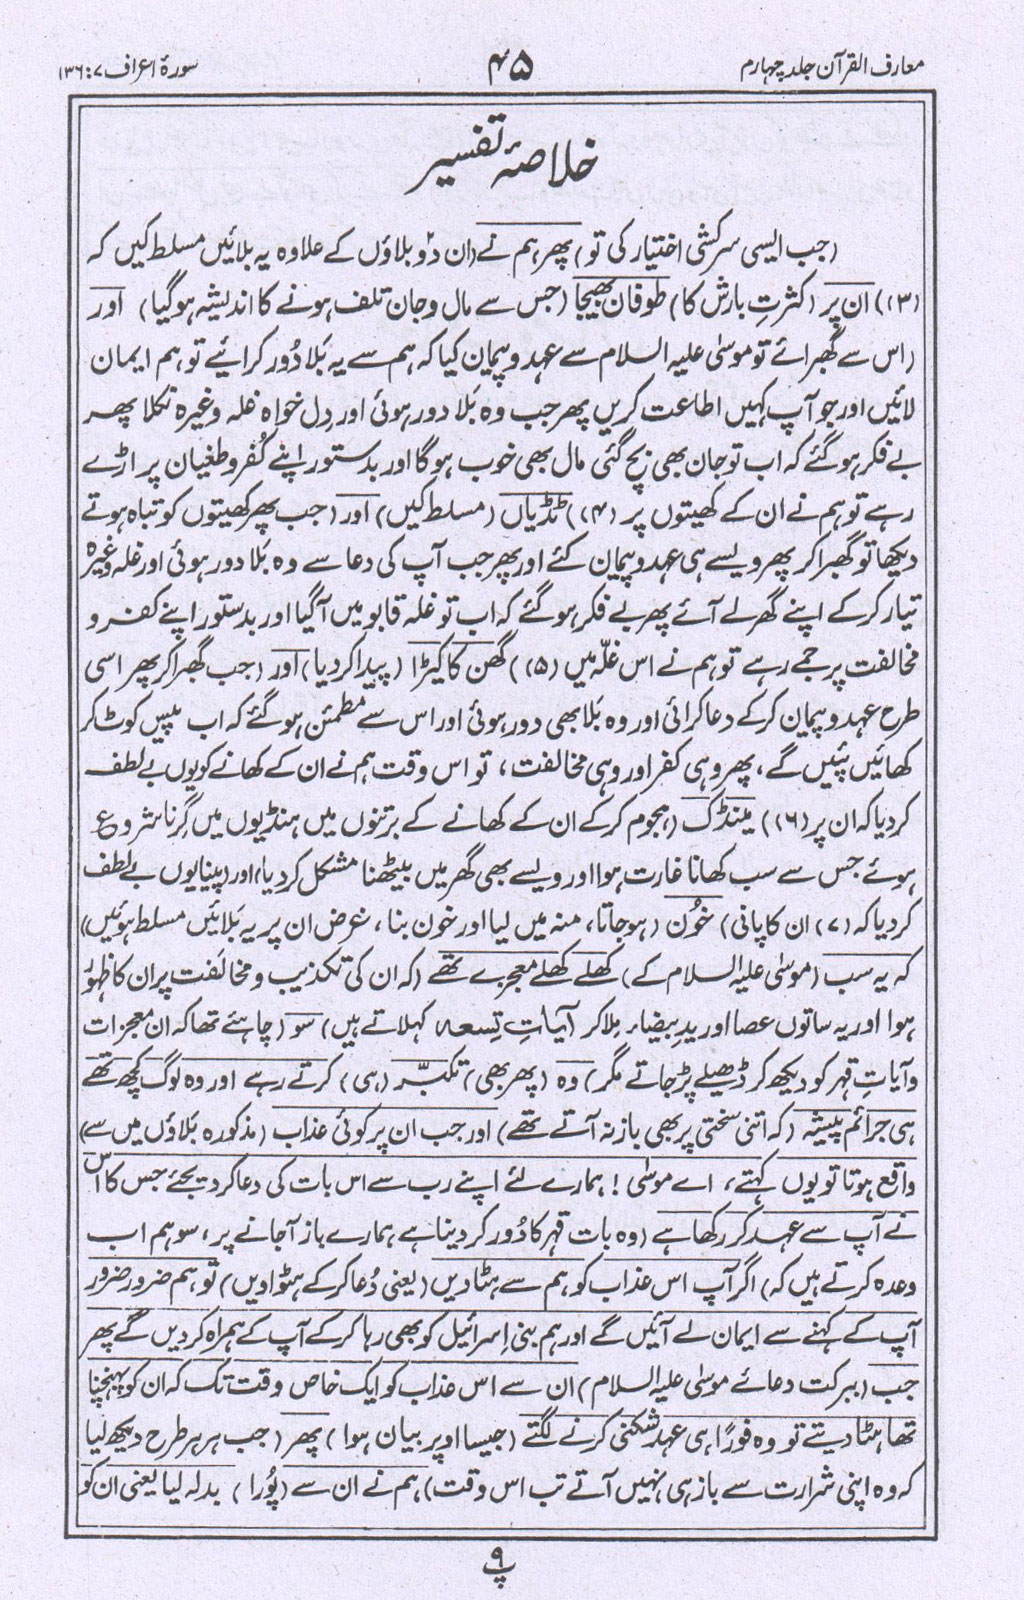 معارف القرآن جلد چہارم
۴۵
سورۂ اعراف ۷: ۱۳۶
خلاصۂ تفسیر
(جب ایسی سرکشی اختیار کی تو) پھر ہم نے (ان دو بلاؤں کے علاوہ یہ بلائیں مسلط کیں کہ
(۳) ان پر (کثرتِ بارش کا) طوفان بھیجا (جس سے مال و جان تلف ہونے کا اندیشہ ہوگیا) اور
(اس سے گھبرائے تو موسیٰ علیہ السلام سے عہد و پیمان کیا کہ ہم سے یہ بَلا دُور کرائیے تو ہم ایمان
لائیں اور جو آپ کہیں اطاعت کریں پھر جب وہ بَلا دور ہوئی اور دِل خواہ غلہ وغیرہ نکلا پھر
بے فکر ہوگئے کہ اب تو جان بھی بچ گئی مال بھی خوب ہوگا اور بدستور اپنے کُفر و طغیان پر اڑے
رہے تو ہم نے ان کے کھیتوں پر (۴) ٹڈیاں (مسلط کیں) اور (جب پھر کھیتوں کو تباہ ہوتے
دیکھا تو گھبرا کر پھر ویسے ہی عہد و پیمان کئے اور پھر جب آپ کی دعا سے وہ بَلا دور ہوئی اور غلہ وغیرہ
تیار کرکے اپنے گھر لے آئے پھر بے فکر ہوگئے کہ اب تو غلہ قابو میں آگیا اور بدستور اپنے کفر و
مخالفت پر جمے رہے تو ہم نے اس غلّہ میں (۵) گھن کا کیڑا (پیدا کردیا) اور (جب گھبرا کر پھر اسی
طرح عہد و پیمان کرکے دعا کرائی اور وہ بَلا بھی دور ہوئی اور اس سے مطمئن ہوگئے کہ اب پیس کوٹ کر
کھائیں پئیں گے، پھر وہی کفر اور وہی مخالفت، تو اس وقت ہم نے ان کے کھانے کو یوں بے لطف
کردیا کہ ان پر (۶) مینڈک (ہجوم کرکے ان کے کھانے کے برتنوں میں ہنڈیوں میں گِرنا شروع
ہوئے جس سے سب کھانا غارت ہوا اور ویسے بھی گھر میں بیٹھنا مشکل کردیا) اور (پینا یوں بے لطف
کردیا کہ (۷) ان کا پانی) خُون (ہوجاتا، منہ میں لیا اور خون بنا، غرض ان پر یہ بَلائیں مسلط ہوئیں)
کہ یہ سب (موسیٰ علیہ السلام کے) کھلے کھلے معجزے تھے (کہ ان کی تکذیب و مخالفت پر ان کا ظہور
ہوا اور یہ ساتوں عصا اور یدِ بیضاء مِلا کر آیاتِ تِسعہ کہلاتے ہیں) سو (چاہئے تھا کہ ان معجزات
و آیاتِ قہر کو دیکھ کر ڈھیلے پڑجاتے مگر) وہ (پھر بھی) تکبّر (ہی) کرتے رہے اور وہ لوگ کچھ تھے
ہی جرائم پیشہ (کہ اتنی سختی پر بھی باز نہ آتے تھے) اور جب ان پر کوئی عذاب (مذکورہ بَلاؤں میں سے)
واقع ہوتا تو یوں کہتے، اے موسیٰ! ہمارے لئے اپنے رب سے اس بات کی دعا کردیجئے جس کا اس
نے آپ سے عہد کر رکھا ہے (وہ بات قہر کا دُور کردینا ہے ہمارے باز آجانے پر، سو ہم اب
وعدہ کرتے ہیں کہ) اگر آپ اس عذاب کو ہم سے ہٹادیں (یعنی دُعا کرکے ہٹوادیں) تو ہم ضرور ضرور
آپ کے کہنے سے ایمان لے آئیں گے اور ہم بنی اِسرائیل کو بھی رہا کرکے آپ کے ہمراہ کردیں گے پھر
جب (ببرکت دعائے موسیٰ علیہ السلام) ان سے اس عذاب کو ایک خاص وقت تک کہ ان کو پہنچنا
تھا ہٹا دیتے تو وہ فورًا ہی عہد شکنی کرنے لگتے (جیسا اوپر بیان ہوا) پھر (جب ہر ہر طرح دیکھ لیا
کہ وہ اپنی شرارت سے باز ہی نہیں آتے تب اس وقت) ہم نے ان سے (پُورا) بدلہ لیا یعنی ان کو
پ ۹